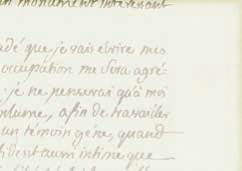 un monument intéressant
adé que je vais écrire mes
occupation me sera agré-
: je ne penserai qu'à moi
plume, afin de travailler
un témoin gêne, quand
fident aussi intime que